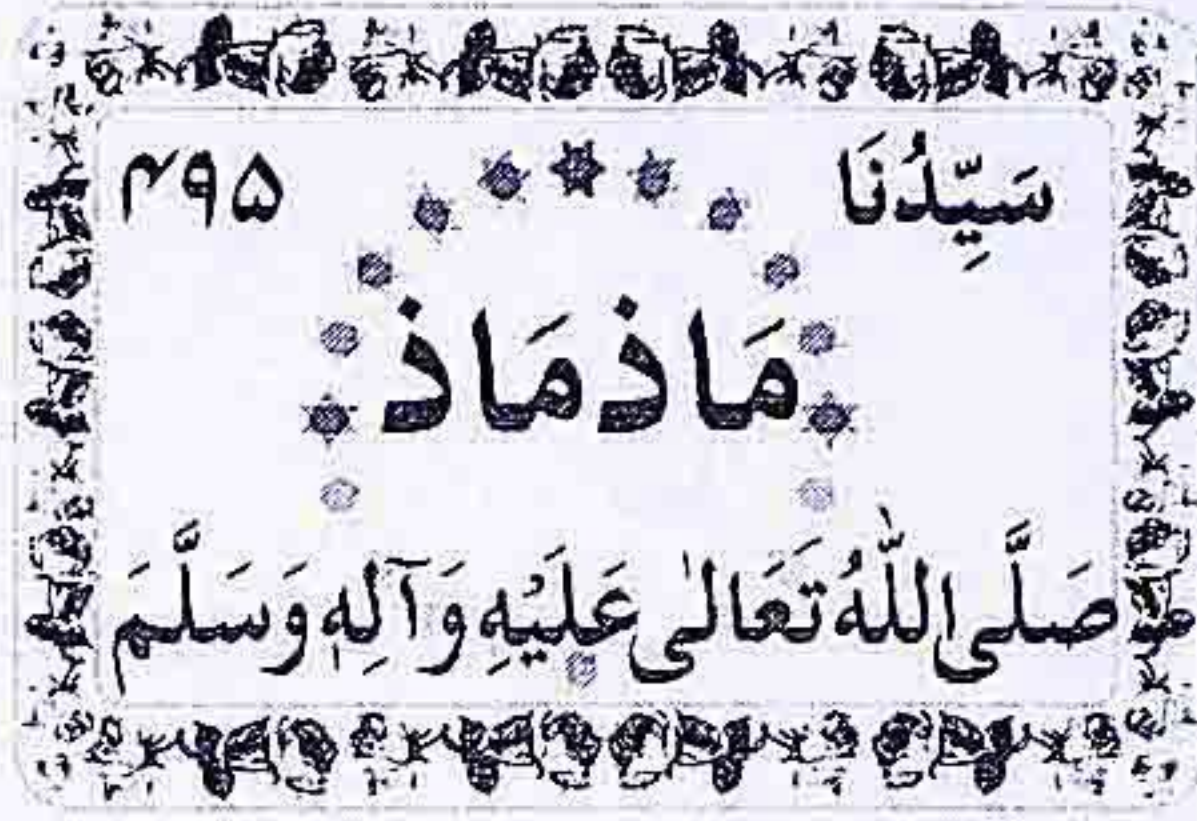 سَيِّدُنَا ۴۹۵
مَاذ مَاذ
صَلَّى اللّٰهُ تَعَالٰى عَلَيْهِ وَآلِهٖ وَسَلَّمَ